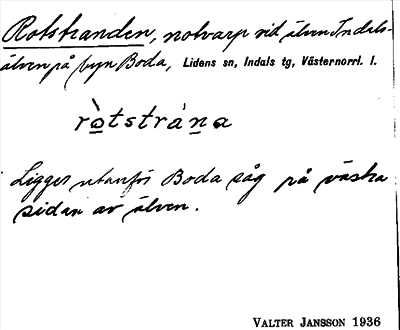 Rotstranden, notvarp vid älven Indals-
älven på byn Boda, Lidens sn, Indals tg, Västernorrl. l.
rò̱tstrána̱
Ligger utanför Boda såg på västra
sidan av älven.
VALTER JANSSON 1936